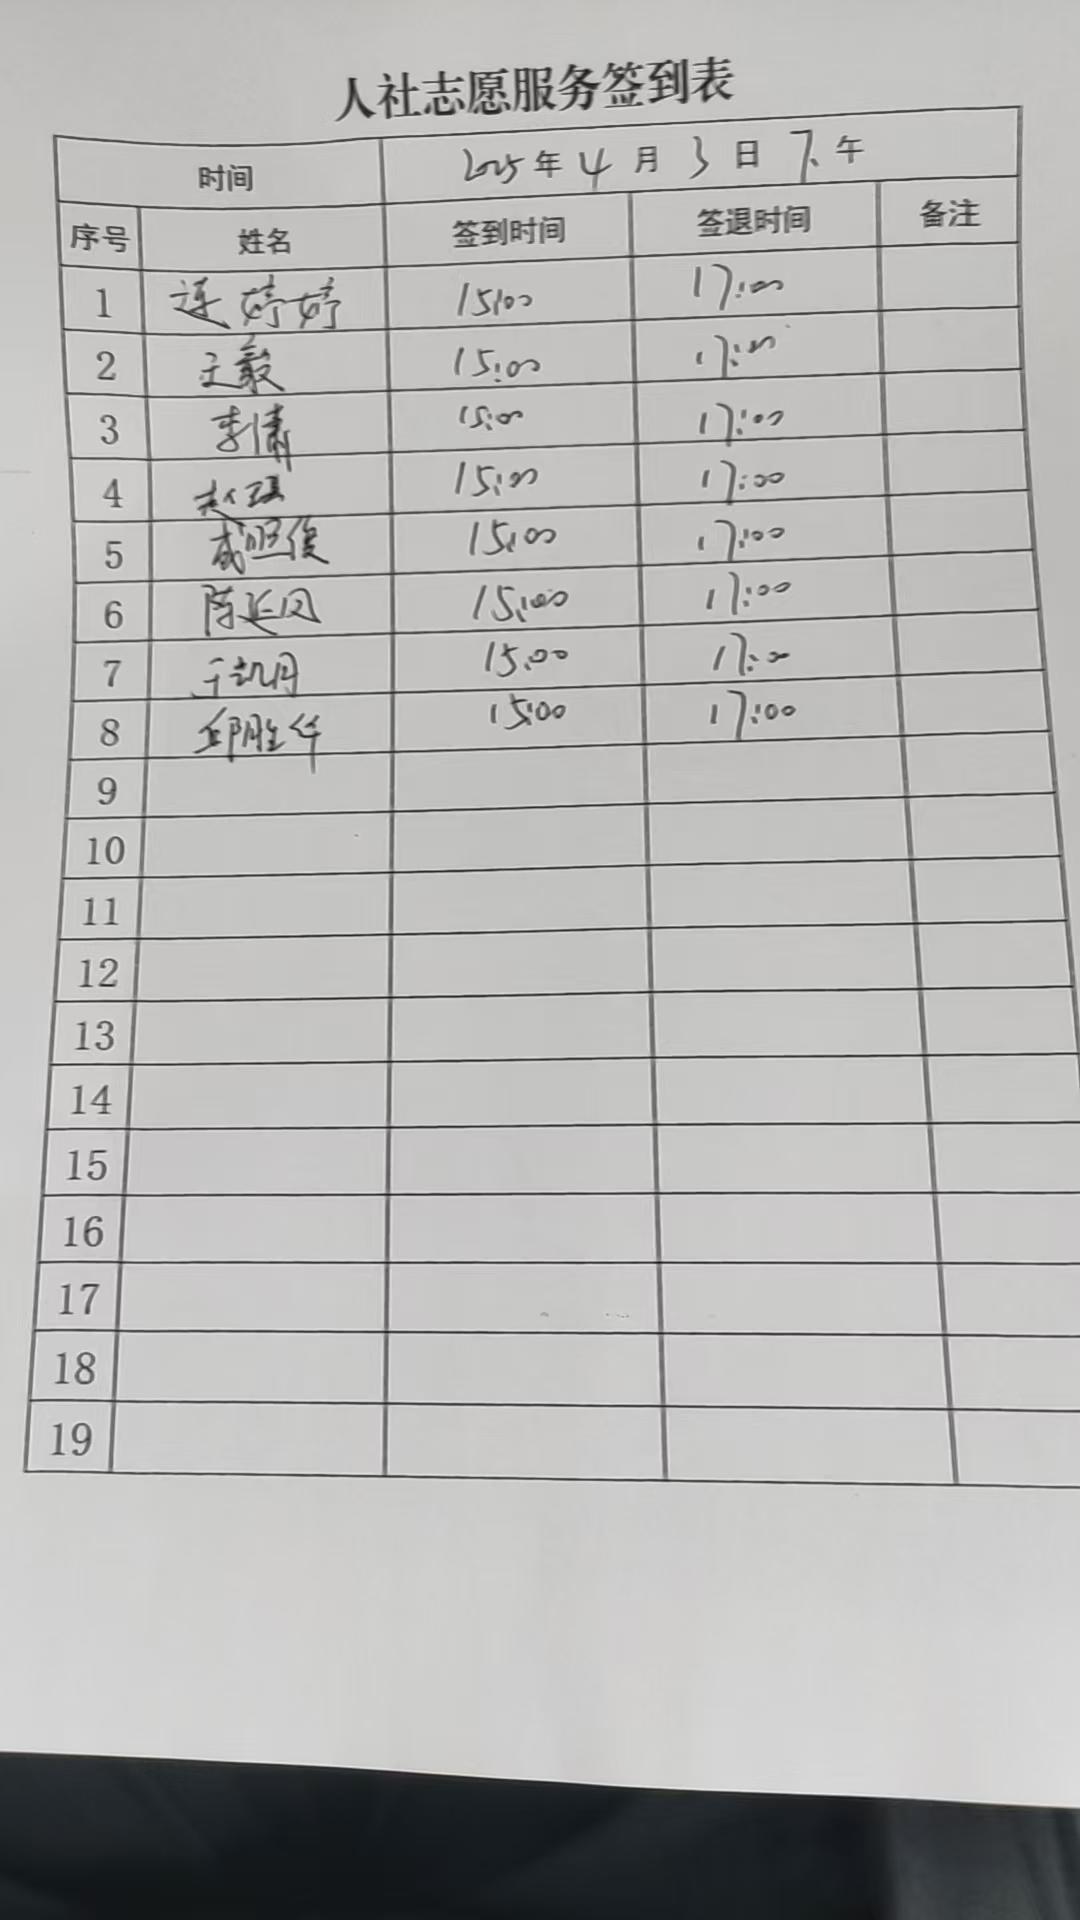 人社志愿服务签到表
时间 2025年4月3日下午
序号 姓名 签到时间 签退时间 备注
1 连婷婷 15:00 17:00
2 王敏 15:00 17:00
3 李倩 15:00 17:00
4 赵 15:00 17:00
5 成照俊 15:00 17:00
6 陈延风 15:00 17:00
7 于凯月 15:00 17:00
8 邱胜华 15:00 17:00
9
10
11
12
13
14
15
16
17
18
19